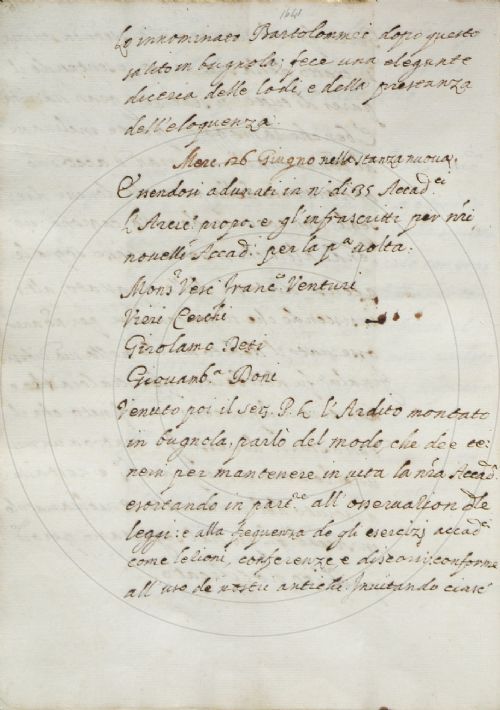 1641
Lo innominato Bartolommei dopo questo
salito in bugnola, fece una elegante
diceria delle lodi, e della prestanza
dell'eloquenza.
Merc. 26 Giugno nella stanza nuova.
Essendosi adunati in n.º di 35 Accad.ci
L'Arcic.º propose gl'infrascritti per nri
novelli Accad. per la p.ª volta.
Mons.r Vesc. Franc.º Venturi
Vieri Cerchi
Girolamo Deti
Giovanb.ª Doni
Venuto poi il P. L. l'Ardito montato
in bugnola, parlò del modo che dee te-
nersi per mantenere in vita la nra Accad.ª
esortando in part.re all'osservazion dlle
leggi: e alla frequenza de gli esercizj accad.ci
come lezioni, conferenze e discorsi conforme
all'uso de nostri antichi. Invitando ciasc